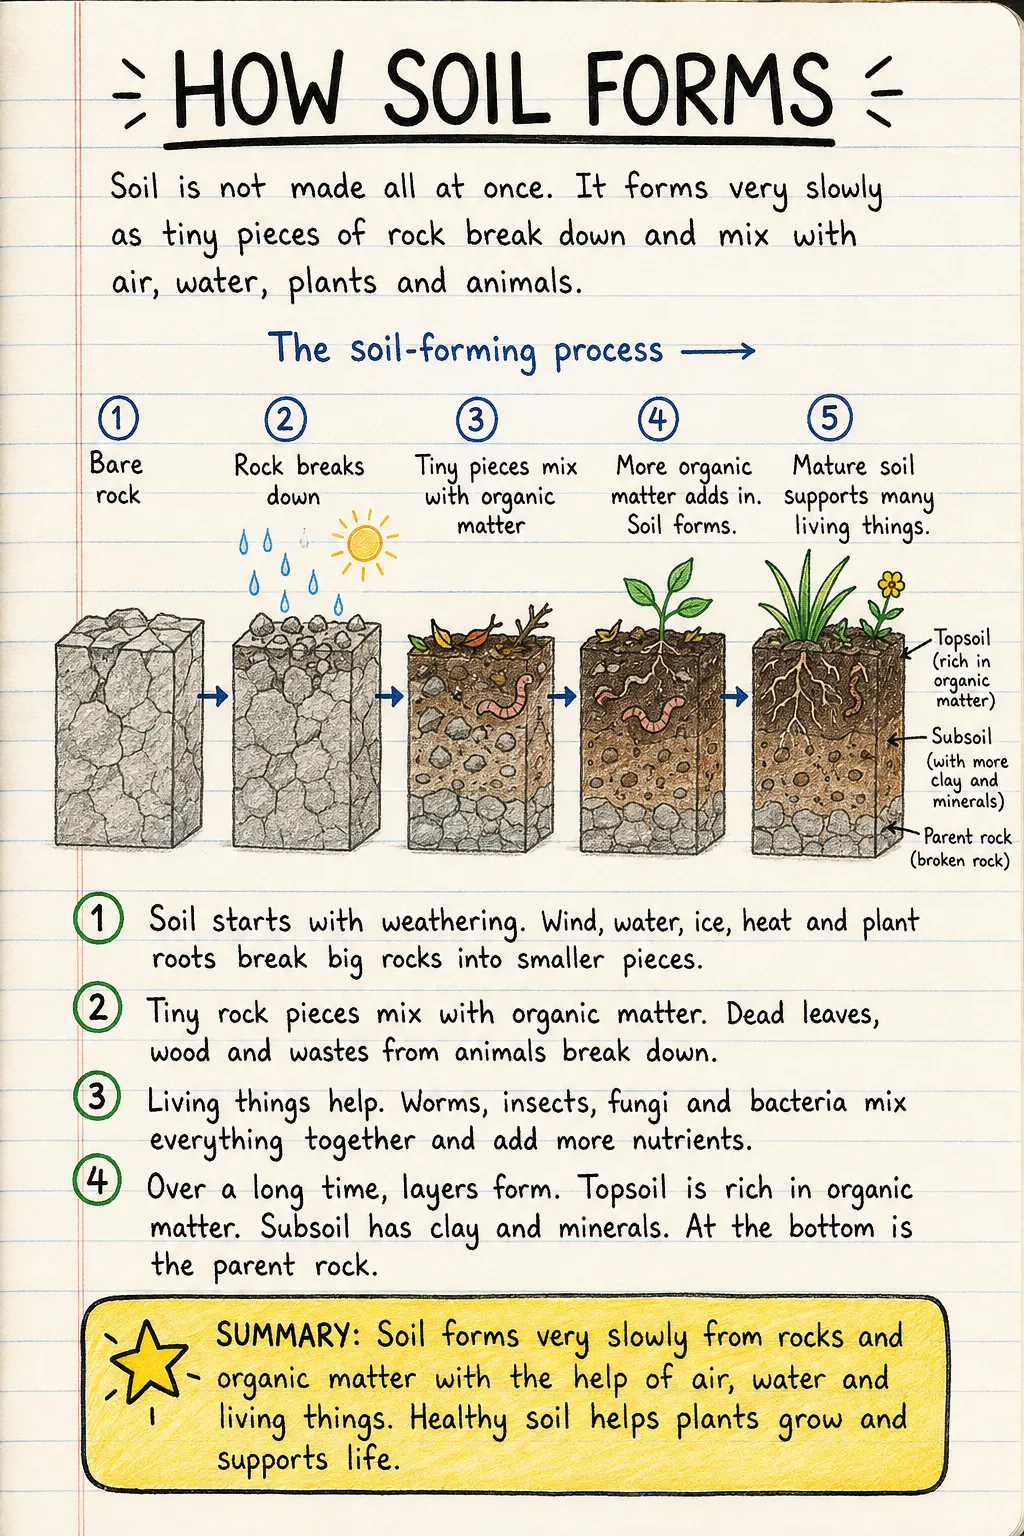 HOW SOIL FORMS
Soil is not made all at once. It forms very slowly
as tiny pieces of rock break down and mix with
air, water, plants and animals.
The soil-forming process
1
Bare
rock
2
Rock breaks
down
3
Tiny pieces mix
with organic
matter
4
More organic
matter adds in.
Soil forms.
5
Mature soil
supports many
living things.
Topsoil
(rich in
organic
matter)
Subsoil
(with more
clay and
minerals)
Parent rock
(broken rock)
1 Soil starts with weathering. Wind, water, ice, heat and plant
roots break big rocks into smaller pieces.
2 Tiny rock pieces mix with organic matter. Dead leaves,
wood and wastes from animals break down.
3 Living things help. Worms, insects, fungi and bacteria mix
everything together and add more nutrients.
4 Over a long time, layers form. Topsoil is rich in organic
matter. Subsoil has clay and minerals. At the bottom is
the parent rock.
SUMMARY: Soil forms very slowly from rocks and
organic matter with the help of air, water and
living things. Healthy soil helps plants grow and
supports life.